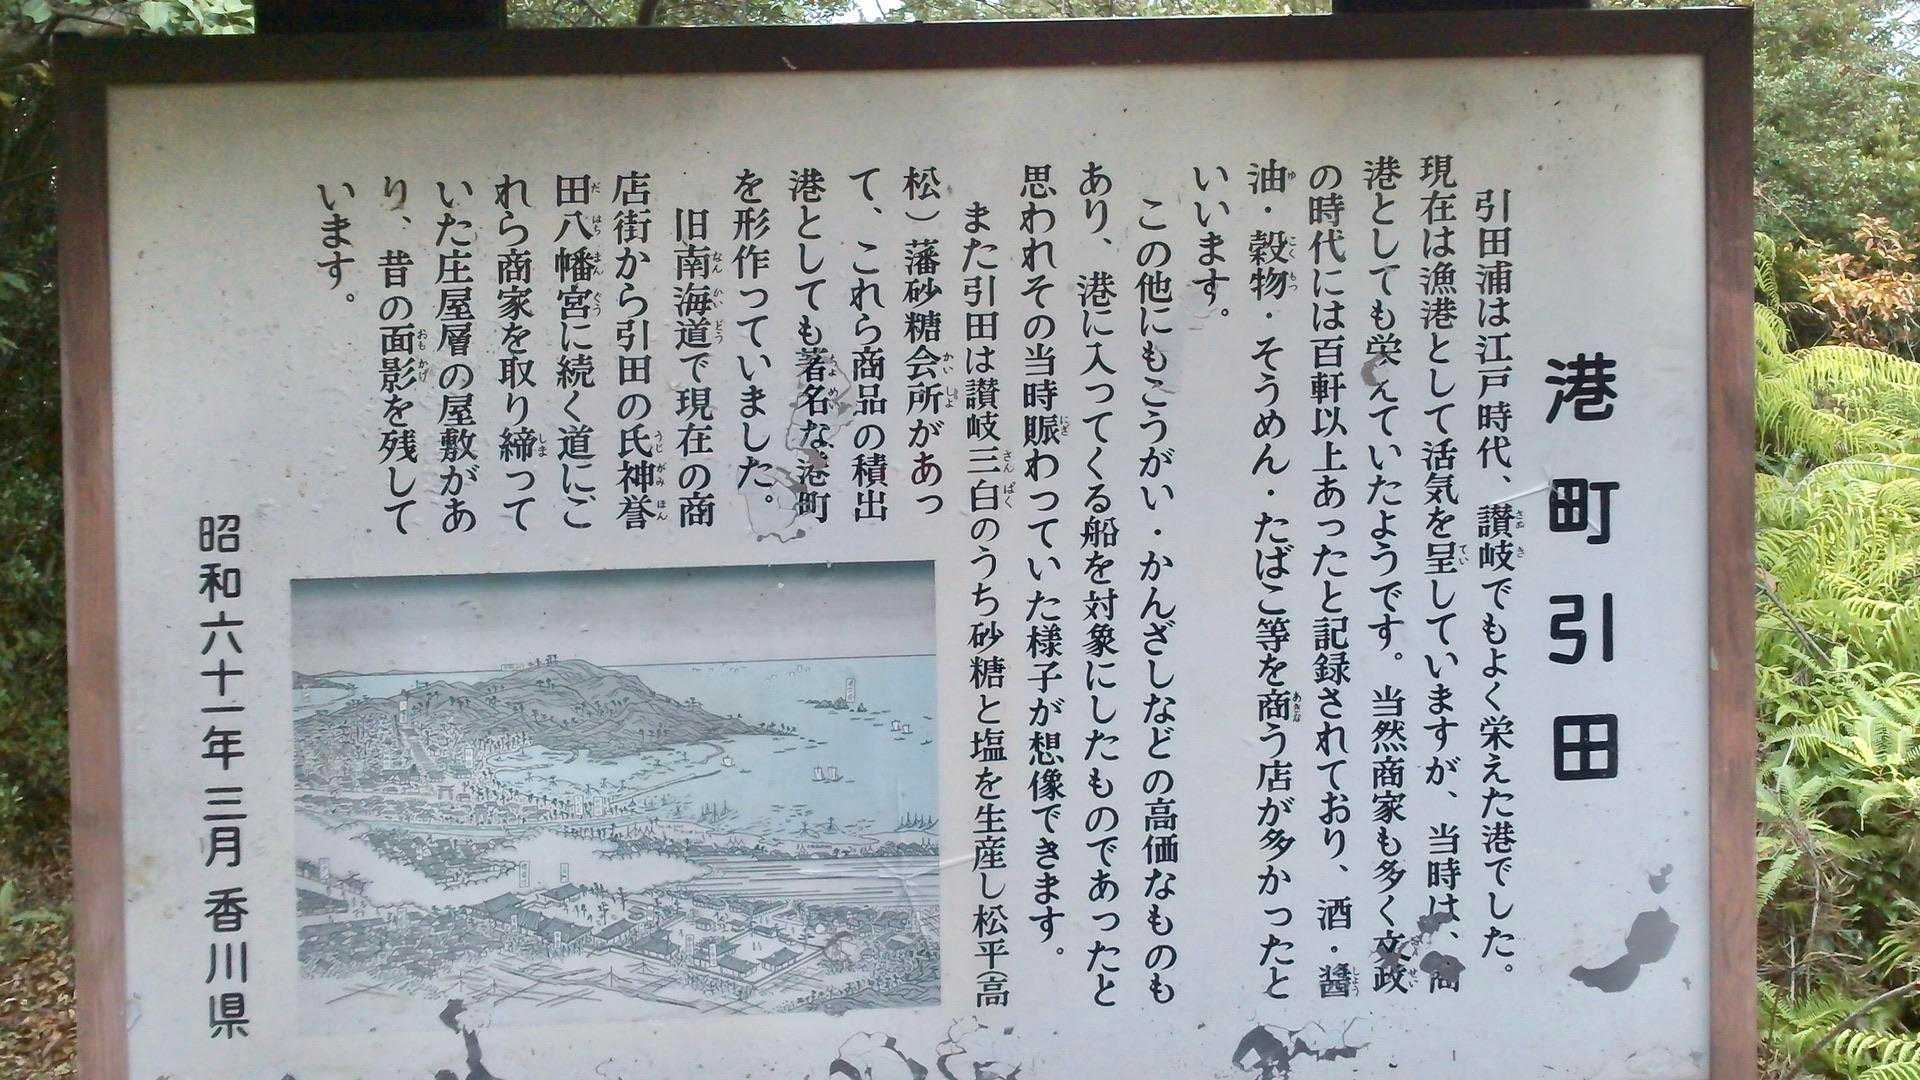 港町引田
引田浦は江戸時代、讃岐でもよく栄えた港でした。
現在は漁港として活気を呈していますが、当時は、商
港としても栄えていたようです。当然商家も多く文政
の時代には百軒以上あったと記録されており、酒・醤
油・穀物・そうめん・たばこ等を商う店が多かったと
いいます。
この他にもこうがい・かんざしなどの高価なものも
あり、港に入ってくる船を対象にしたものであったと
思われその当時賑わっていた様子が想像できます。
また引田は讃岐三白のうち砂糖と塩を生産し松平(高
松)藩砂糖会所があっ
て、これら商品の積出
港としても著名な港町
を形作っていました。
旧南海道で現在の商
店街から引田の氏神誉
田八幡宮に続く道にご
れら商家を取り締って
いた庄屋層の屋敷があ
り、昔の面影を残して
います。
昭和六十一年三月 香川県